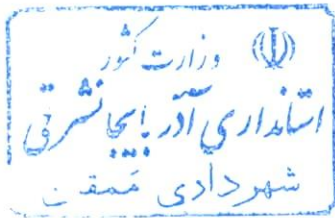 وزارت کشور
استانداری آذربایجانشرقی
شهردادی ممقان